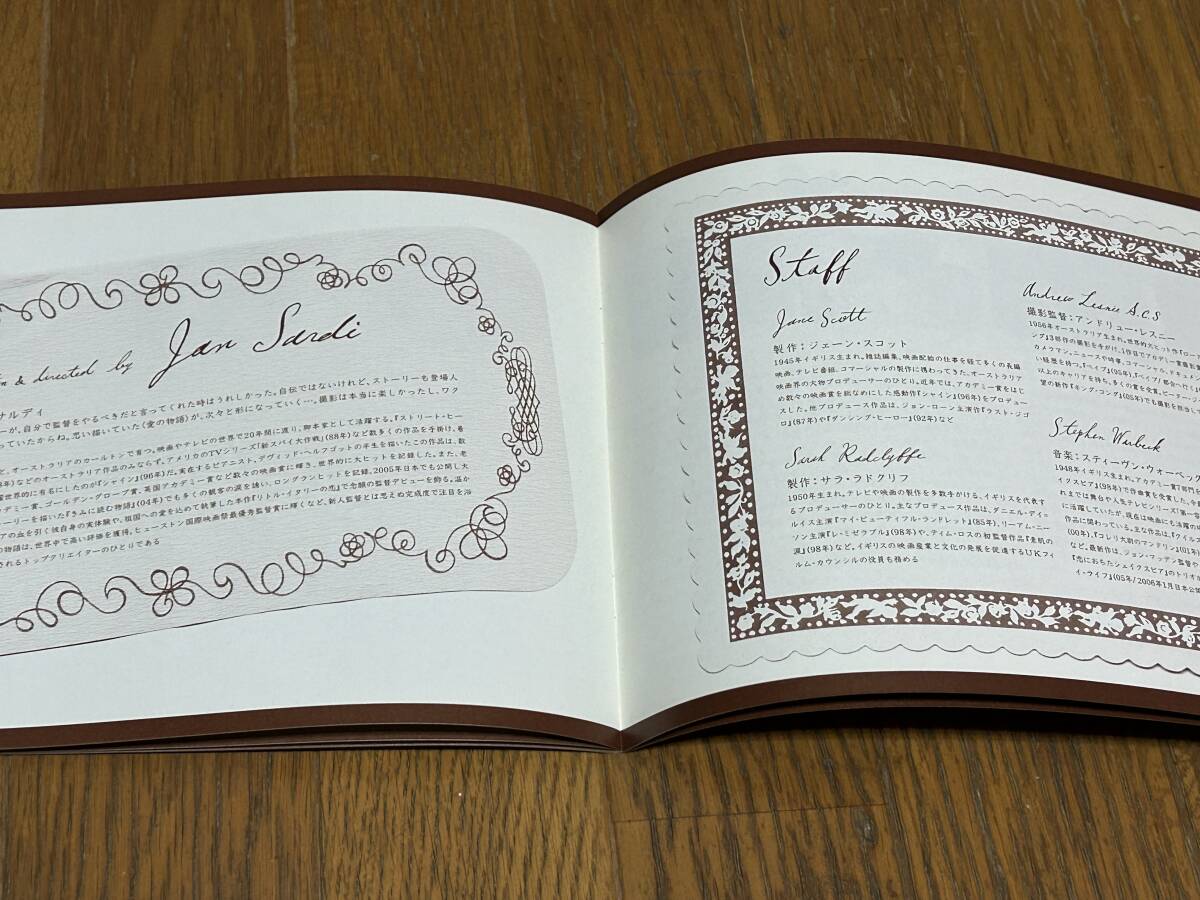 n & directed by Jan Sardi
ナルディ
ーが、自分で監督をやるべきだと言ってくれた時はうれしかった。自伝ではないけれど、ストーリーも登場人
っていたからね。思い描いていた〈愛の物語〉が、次々と形になっていく…。撮影は本当に楽しかったし、ワク
と、オーストラリアのカールトンで育つ。映画やテレビの世界で20年間に渡り、脚本家として活躍する。『ストリート・ヒー
年)などのオーストラリア作品のみならず、アメリカのTVシリーズ「新スパイ大作戦」(88年)など数多くの作品を手掛け、着
世界的に有名にしたのが『シャイン』(96年)だ。実在するピアニスト、デヴィッド・ヘルフゴットの半生を描いたこの作品は、数
デミー賞、ゴールデン・グローブ賞、英国アカデミー賞など数々の映画賞に輝き、世界的に大ヒットを記録した。また、老
ーリーを描いた『きみに読む物語』(04年)でも多くの観客の涙を誘い、ロングランヒットを記録。2005年日本でも公開し大
アの血を引く彼自身の実体験や、祖国への愛を込めて執筆した本作『リトル・イタリーの恋』で念願の監督デビューを飾る。温か
の物語は、世界中で高い評価を獲得。ヒューストン国際映画祭最優秀監督賞に輝くなど、新人監督とは思えぬ完成度で注目を浴
されるトップクリエイターのひとりである
Staff
Jane Scott
製作:ジェーン・スコット
1945年イギリス生まれ。雑誌編集、映画配給の仕事を経て多くの長編
映画、テレビ番組、コマーシャルの製作に携わってきた、オーストラリア
映画界の大物プロデューサーのひとり。近年では、アカデミー賞をはじ
め数々の映画賞を総なめにした感動作『シャイン』(96年)をプロデュー
スした。他プロデュース作品は、ジョン・ローン主演作『ラスト・ジゴ
ロ』(87年)や『ダンシング・ヒーロー』(92年)など
Sarah Radclyffe
製作:サラ・ラドクリフ
1950年生まれ。テレビや映画の製作を多数手がける、イギリスを代表す
るプロデューサーのひとり。主なプロデュース作品は、ダニエル・デイ=
ルイス主演『マイ・ビューティフル・ランドレット』(85年)、リーアム・ニー
ソン主演『レ・ミゼラブル』(98年)や、ティム・ロスの初監督作品『素肌の
涙』(98年)など。イギリスの映画産業と文化の発展を促進するUKフィ
ルム・カウンシルの役員も務める
Andrew Lesnie A.C.S
撮影監督:アンドリュー・レスニー
1956年オーストラリア生まれ。世界的大ヒット作『ロー
ング』3部作の撮影を手がけ、1作目でアカデミー賞撮影
カメラマン。ニュースや時事、コマーシャル、ドキュメン
い経歴を持つ。『ベイブ』(95年)、『ベイブ/都会へ行く』
以上のキャリアを持ち、多くの賞を受賞。ピーター・ジャ
望の新作『キング・コング』(05年)でも撮影を担当し
Stephen Warbeck
音楽:スティーヴン・ウォーベック
1948年イギリス生まれ。アカデミー賞
イクスピア』(98年)で作曲賞を受賞した。今
れまでは舞台や人気テレビシリーズ「第一
に活躍していたが、現在は映画にも活躍の
作品に関わっている。主な作品は、『クイルズ
(00年)、『コレリ大尉のマンドリン』(01年)
など。最新作は、ジョン・マッデン監督や
『恋におちたシェイクスピア』のトリオ
イ・ライフ』(05年/2006年1月日本公開